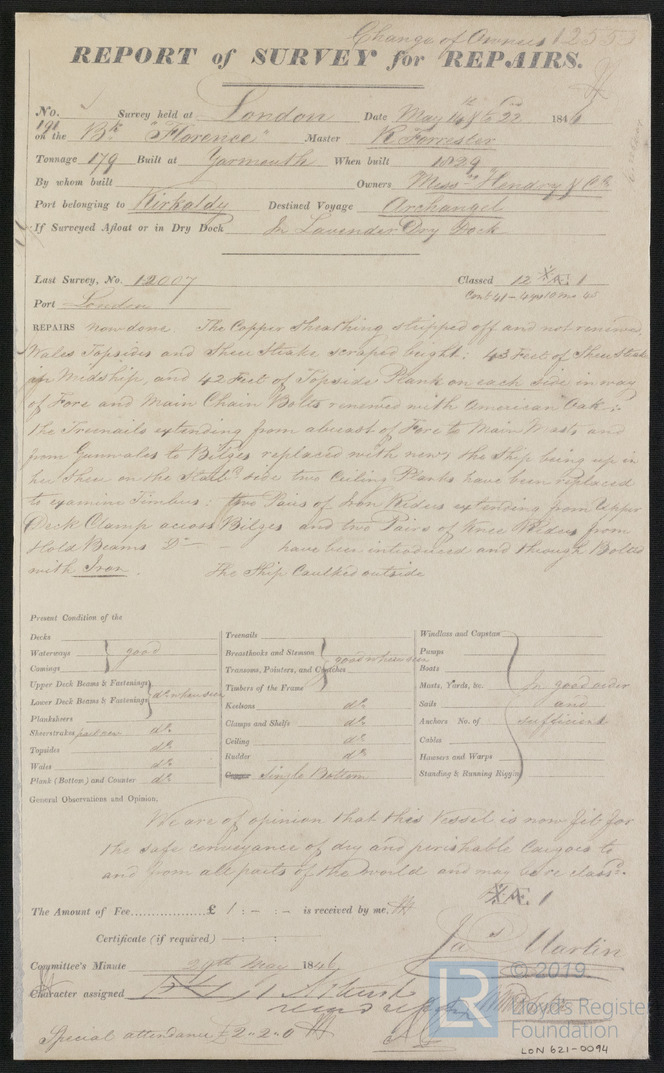 Change of Owners 12553
REPORT of SURVEY for REPAIRS.
No. Survey held at London Date May 14th & 22 1846
191 on the Bk "Florence" Master R Forrester
Tonnage 179 Built at Yarmouth When built 1829
By whom built Owners Messrs Hendry & Co
Port belonging to Kirkaldy Destined Voyage Archangel
If Surveyed Afloat or in Dry Dock In Lavender Dry Dock
Last Survey, No. 12007 Classed 12 Æ 1
Port London Cont 41 - 4 yrs 10 mo 45
REPAIRS now done The Copper Sheathing stripped off and not renewed,
Wales Topsides and Sheer Strake scraped bright: 43 Feet of Sheer Strake
in Midship, and 42 Feet of Topside Plank on each side in way
of Fore and Main Chain Bolts renewed with American Oak:
the Treenails extending from abreast of Fore to Main Masts and
from Gunwales to Bilges replaced with new, the Ship being up in
her Shee on the Starbd side two Ceiling Planks have been replaced
to examine Timbers: two Pairs of Iron Riders extending from Upper
Deck Clamp across Bilges and two Pairs of Knee Riders from
Hold Beams Do have been introduced and through Bolted
with Iron. The Ship Caulked outside
Present Condition of the
Decks
Waterways good
Comings
Upper Deck Beams & Fastenings
Lower Deck Beams & Fastenings do when seen
Planksheers
Sheerstrakes part new do
Topsides do
Wales do
Plank (Bottom) and Counter do
Treenails
Breasthooks and Stemson
Transoms, Pointers, and Crutches good when seen
Timbers of the Frame
Keelsons do
Clamps and Shelfs do
Ceiling do
Rudder do
Copper Single Bottom
Windlass and Capstan
Pumps
Boats
Masts, Yards, &c. In good order
Sails and
Anchors No. of sufficient
Cables
Hawsers and Warps
Standing & Running Riggin
General Observations and Opinion.
We are of opinion that this Vessel is now fit for
the safe conveyance of dry and perishable Cargoes to
and from all parts of the world and may be re classd.
Æ 1
The Amount of Fee............... £ 1 : - : - is received by me,
Certificate (if required) - : :
Jas Martin
Committee's Minute 29th May 1846
Character assigned
Special attendance £2..2..0
LR © 2019.
Lloyd's Register
Foundation
LON 621-0094